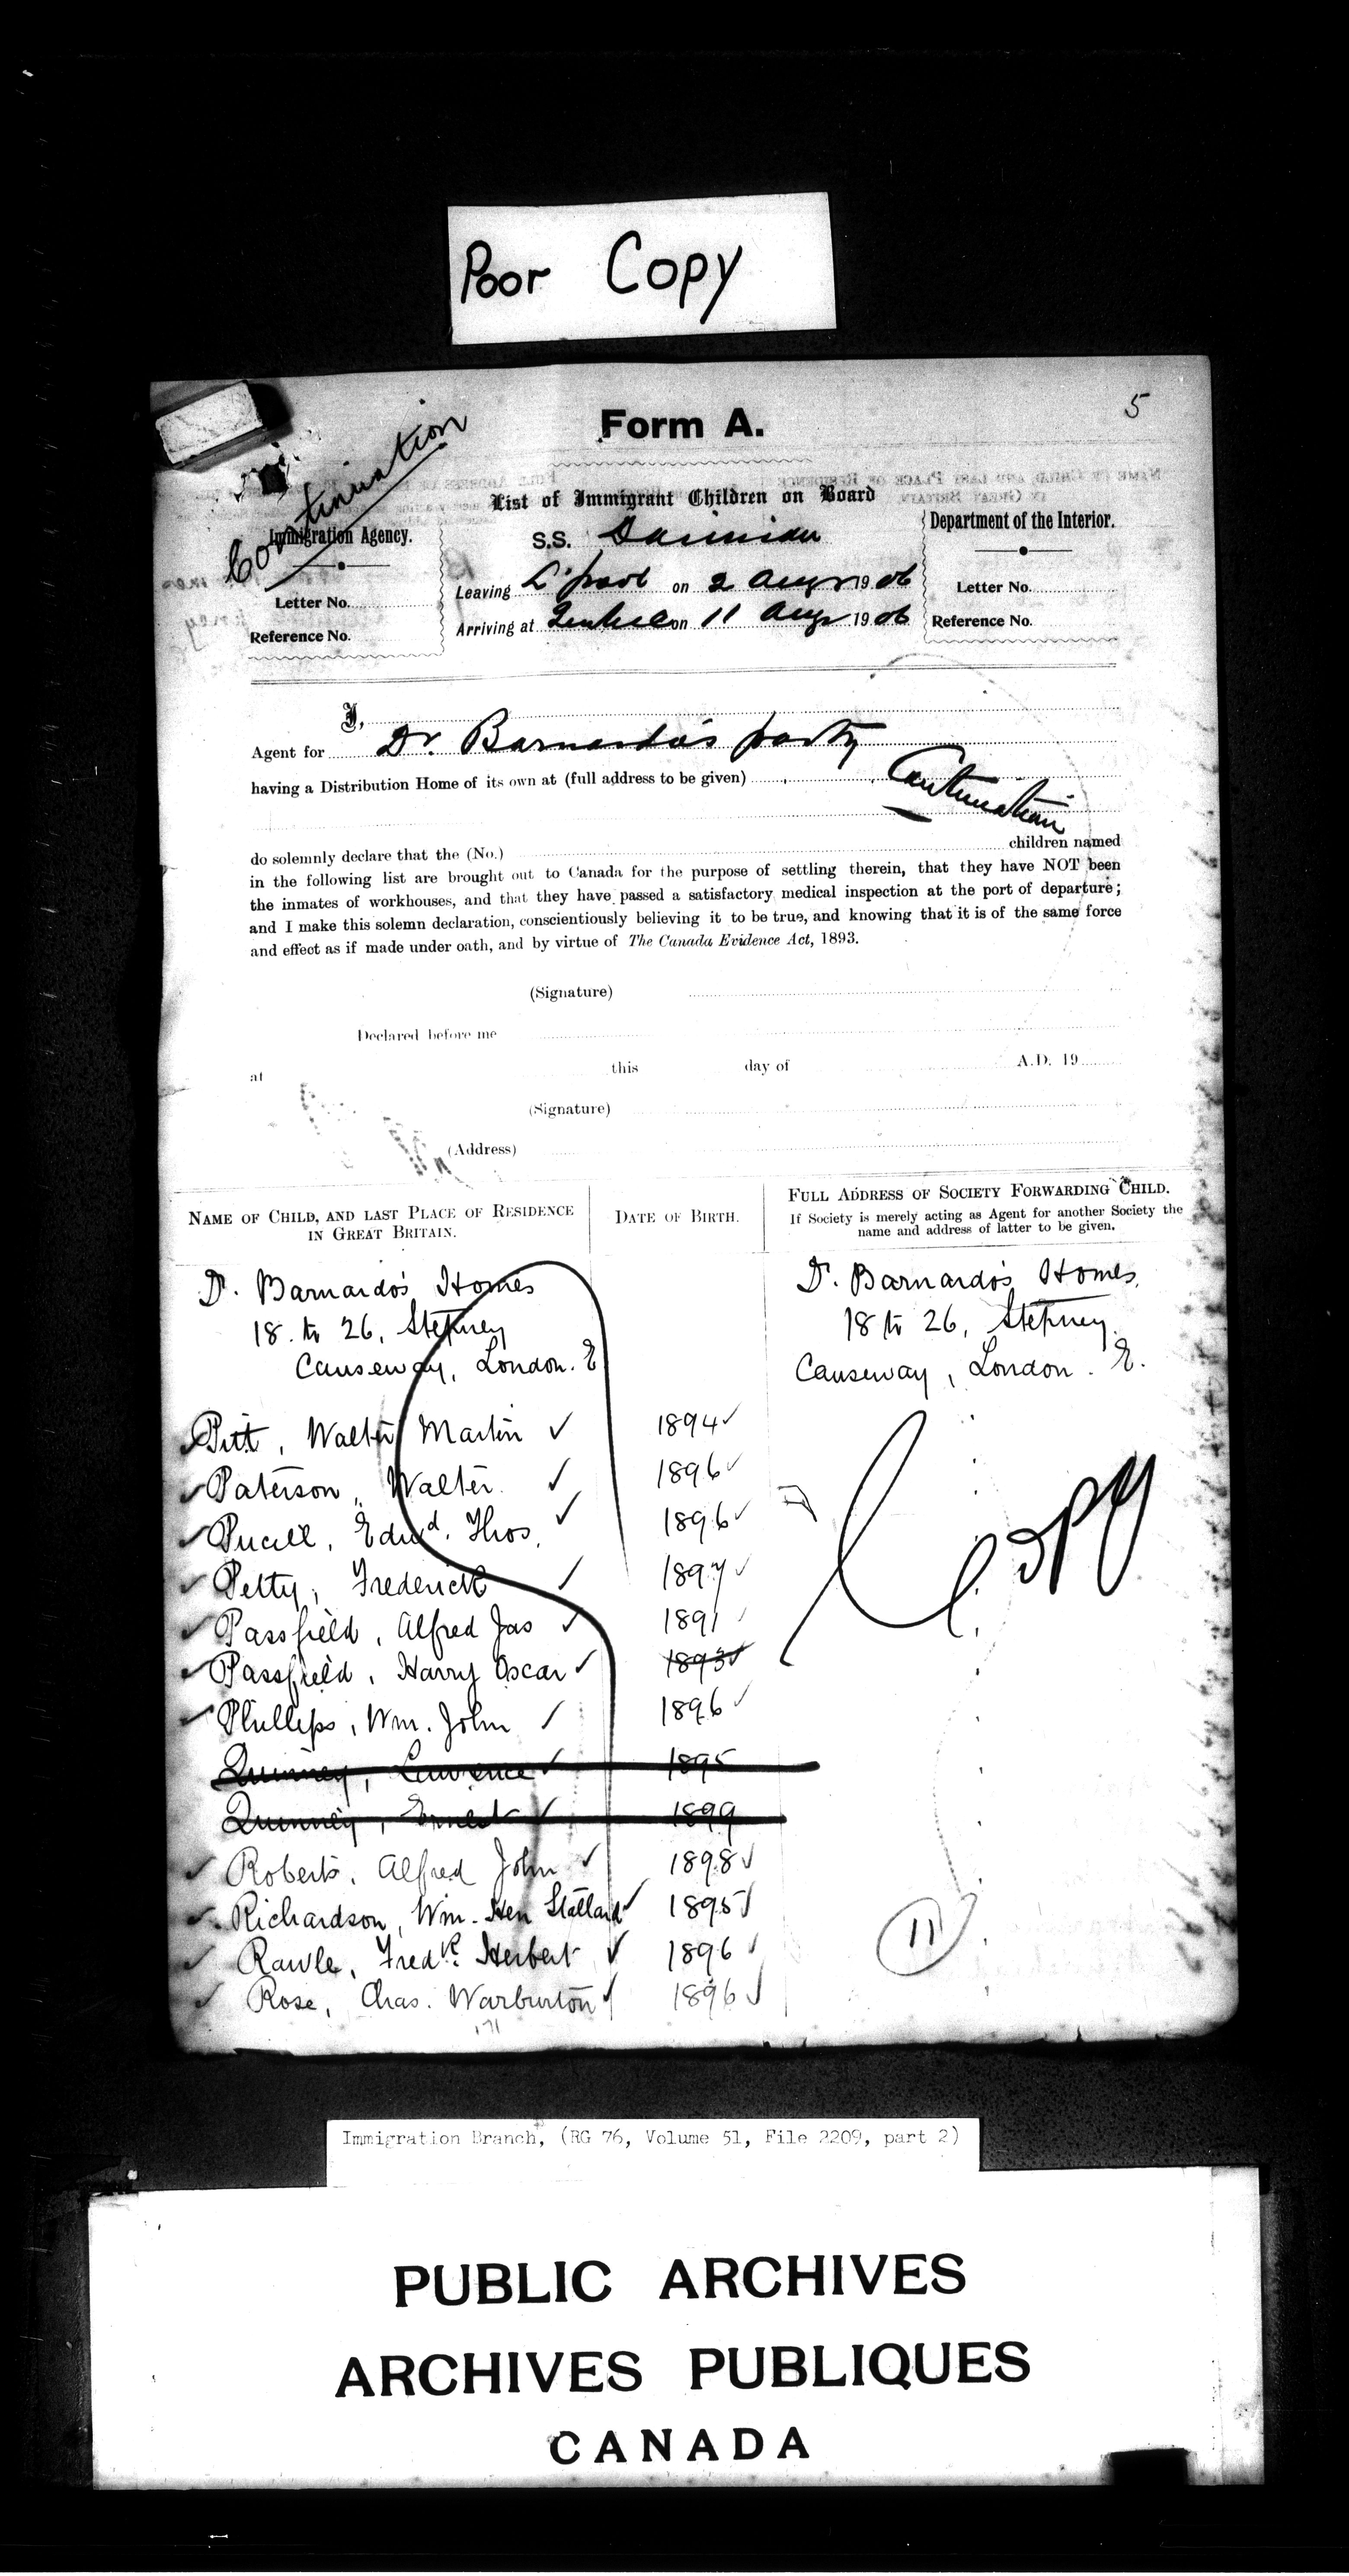 Poor Copy
5
Form A.
Continuation
List of Immigrant Children on Board
Immigration Agency.
S.S.
Department of the Interior.
Letter No.
Leaving L'pool on 2 Aug 1906
Letter No.
Reference No.
Arriving at Quebec on 11 Aug 1906
Reference No.
I,
Agent for Dr Barnardo's party
having a Distribution Home of its own at (full address to be given)
Continuation
do solemnly declare that the (No.) children named
in the following list are brought out to Canada for the purpose of settling therein, that they have NOT been
the inmates of workhouses, and that they have passed a satisfactory medical inspection at the port of departure;
and I make this solemn declaration, conscientiously believing it to be true, and knowing that it is of the same force
and effect as if made under oath, and by virtue of The Canada Evidence Act, 1893.
(Signature)
Declared before me
at this day of A.D. 19
(Signature)
(Address)
NAME OF CHILD, AND LAST PLACE OF RESIDENCE
IN GREAT BRITAIN.
DATE OF BIRTH.
FULL ADDRESS OF SOCIETY FORWARDING CHILD.
If Society is merely acting as Agent for another Society the
name and address of latter to be given.
Dr. Barnardo's Homes
18 to 26, Stepney
Causeway, London. E
Dr. Barnardo's Homes,
18 to 26, Stepney
Causeway, London. E.
Pitt, Walter Martin ✓ 1894 ✓
Paterson, Walter. ✓ 1896 ✓
Pucill, Edwd. Thos. ✓ 1896 ✓
Petty, Frederick ✓ 1897 ✓
Passfield, Alfred Jas ✓ 1891 ✓
Passfield, Harry Oscar ✓ 1893 ✓
Phillips, Wm. John ✓ 1896 ✓
Quinney, Lawrence ✓ 1895
Quinney, Ernest ✓ 1899
Roberts, Alfred John ✓ 1898 ✓
Richardson, Wm. Hen Stallard ✓ 1895 ✓
Rawle, Fredk. Herbert ✓ 1896 ✓
Rose, Chas. Warburton ✓ 1896 ✓
Copy
11
171
Immigration Branch, (RG 76, Volume 51, File 2209, part 2)
PUBLIC ARCHIVES
ARCHIVES PUBLIQUES
CANADA